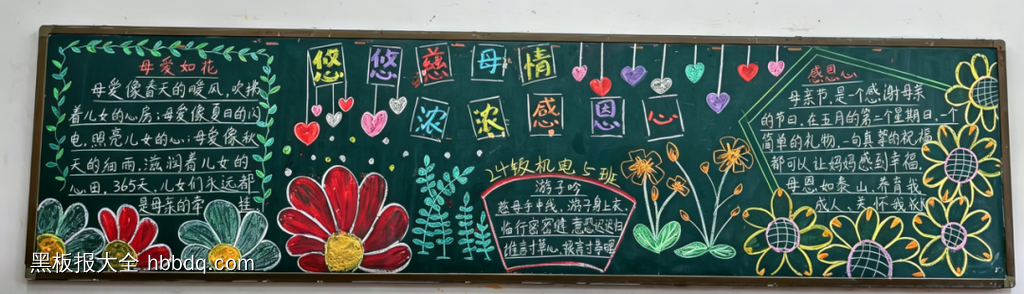 母爱如花
母爱像春天的暖风,吹拂
着儿女的心房;母爱像夏日的闪
电,照亮儿女的心;母爱像秋
天的细雨,滋润着儿女的
心田,365天,儿女们永远都
是母亲的牵挂
悠悠慈母情
浓浓感恩心
24级机电5班
游子吟
慈母手中线,游子身上衣,
临行密密缝,意恐迟迟归
谁言寸草心,报得三春晖
感恩心
母亲节,是一个感谢母亲
的节日,在五月的第二个星期日,一个
简单的礼物,一句真挚的祝福
都可以让妈妈感到幸福.
母恩如泰山,养育我
成人,关怀我
黑板报大全 hbbdq.com